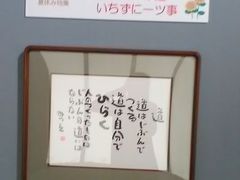 夏休み特集
いちずに一ツ事
道
道はじぶんで
つくる
道は自分で
ひらく
人のつくったものは
じぶんの道には
ならない
みつを